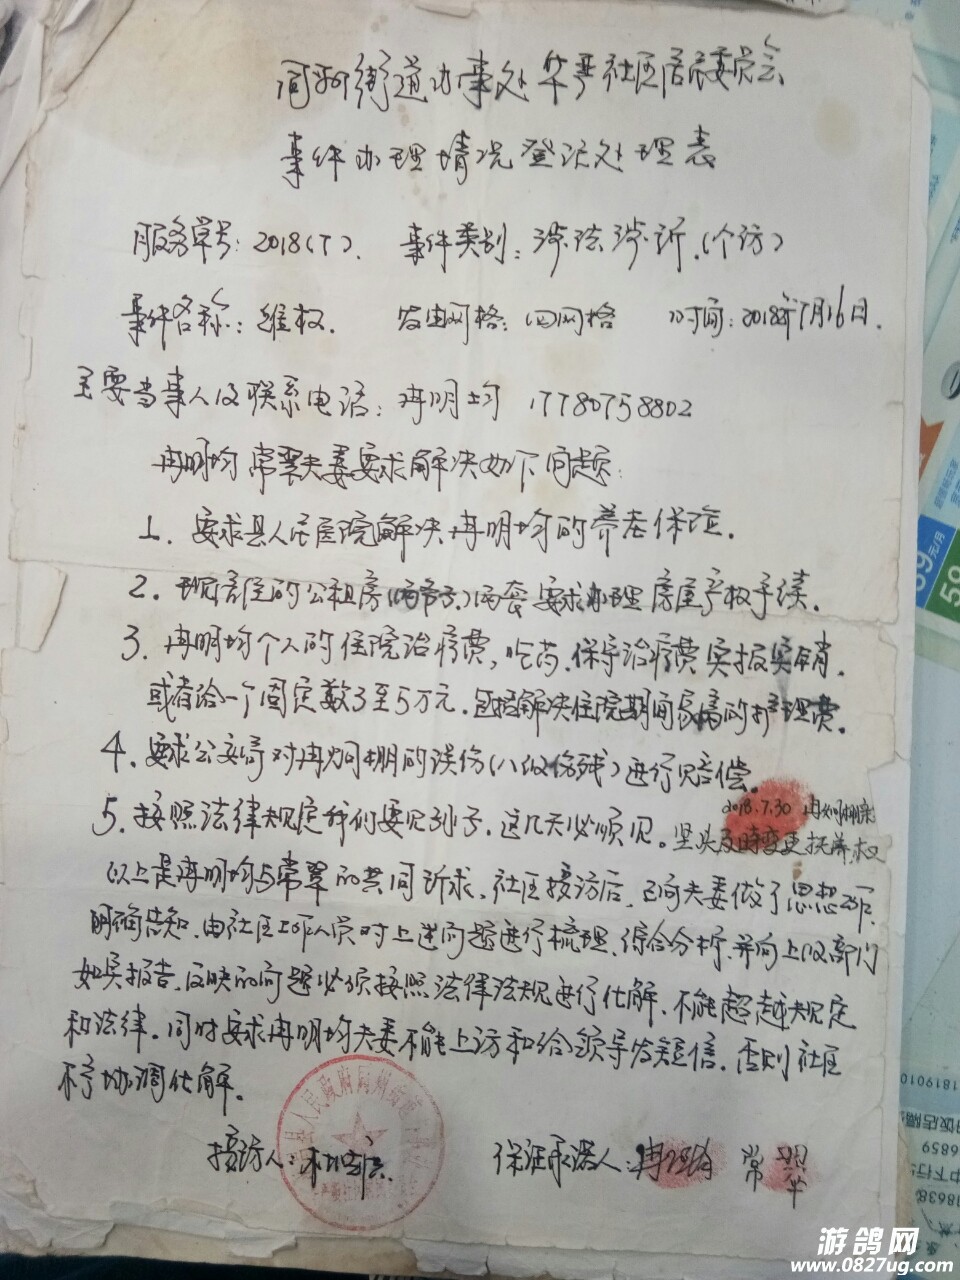 同州街道办事处华严社区居民委员会
事件办理情况登记处理表
服务单号：2018(7).  事件类别：涉法涉诉.(个访)
事件名称：维权.  发由网格：四网格  时间：2018年7月16日.
主要当事人及联系电话：冉明均 17780758802
冉明均常翠夫妻要求解决如下问题：
1. 要求县人民医院解决冉明均的养老保险.
2. 现居住的公租房()两套要求办理房屋产权手续.
3. 冉明均个人的住院治疗费,吃药.保守治疗费实报实销.
或者给一个固定数3至5万元.包括解决住院期间家属的护理费.
4. 要求公安局对冉炯棚的误伤(八级伤残)进行赔偿.
2018.7.30 冉炯棚亲
5. 按照法律规定我们要见孙子.这几天必须见。坚决及时变更抚养权
以上是冉明均与常翠的共同诉求.社区接访后,已向夫妻做了思想工作.
明确告知.由社区工作人员对上述问题进行梳理.综合分析.并向上级部门
如实报告.反映的问题必须按照法律法规进行化解.不能超越规定
和法律.同时要求冉明均夫妻不能上访和给领导发短信.否则社区
不予协调化解.
接访人：  保证承诺人：冉明均 常翠
县人民政府同州街道
元/月
59
1819010
饭店隔
6859
中下行
8638
游鸽网
www.0827ug.com